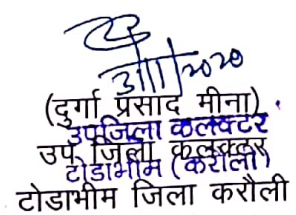 3/11/2020
(दुर्गा प्रसाद मीना)
उपजिला कलक्टर
उप जिला कलक्टर
टोडाभीम (करौली)
टोडाभीम जिला करौली